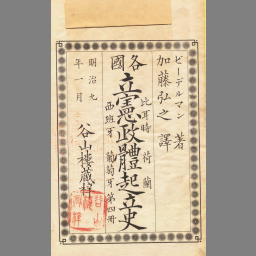 ビーデルマン 著
加藤弘之 譯
各國
立憲政體起立史
比耳時 荷蘭
西班牙 葡萄牙 第四冊
明治九年一月
谷山樓蔵梓